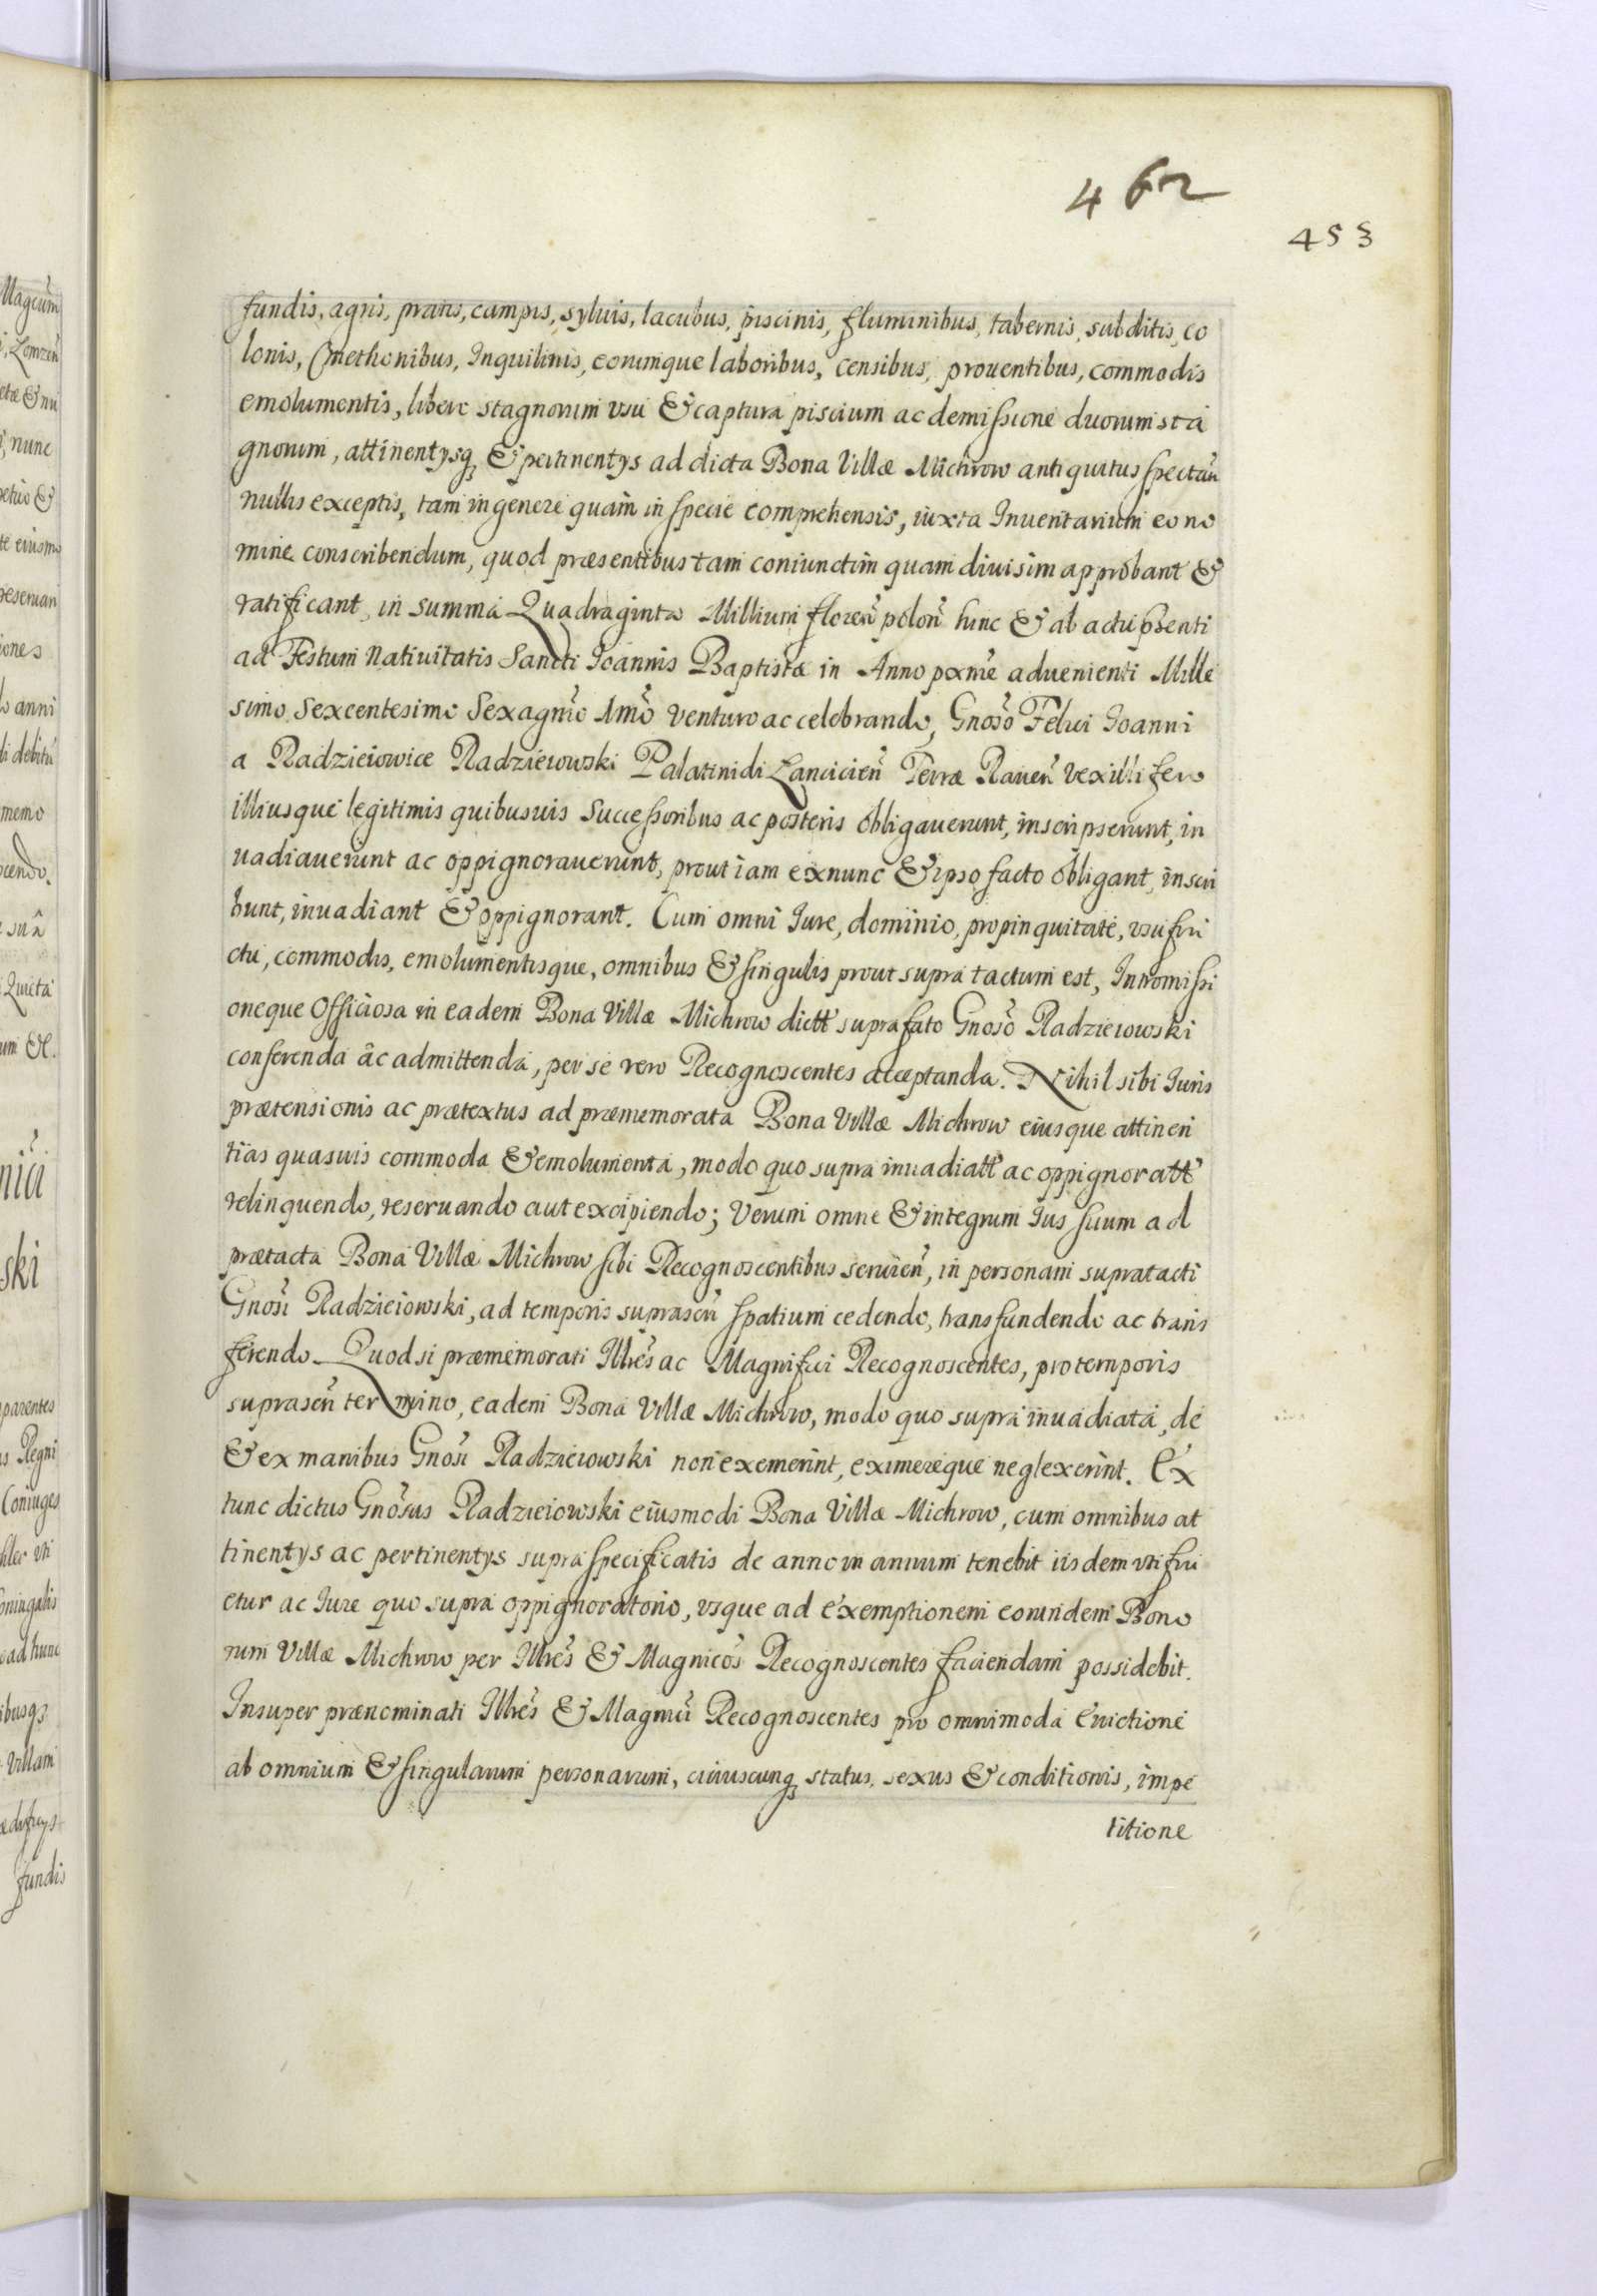 462
453
fundis, agris, pratis, campis, syluis, lacubus, piscinis, fluminibus, tabernis, subditis, co
lonis, Cmethonibus, Inquilinis, eorumque laboribus, censibus, prouentibus, commodis
emolumentis, libero stagnorum vsu & captura piscium ac demissione duorum sta
gnorum, attinentysq3 & pertinentys ad dicta Bona Villæ Michrow antiquitus spectañ
nullis exceptis, tam in genere quam in specie comprehensis, iuxta Inuentarium eo no
mine conscribendum, quod præsentibus tam coniunctim quam diuisim approbant &
ratificant, in summa Quadraginta Millium floreñ poloñ hinc & ab actu pñsenti
ad Festum Natiuitatis Sancti Ioannis Baptistæ in Anno pxme aduenienti Mille
simo Sexcentesimo Sexagmo 1mo venturo ac celebrando, Gnoso Felici Ioanni
a Radzieiowice Radzieiowski Palatinidi Lancicieñ Terræ Raueñ Vexillifero
illiusque legitimis quibusuis Successoribus ac posteris obligauerunt, inscripserunt, in
uadiauerunt ac oppignorauerunt, prout iam ex nunc & ipso facto obligant, inscri
bunt, inuadiant & oppignorant. Cum omni Iure, dominio, propinquitate, vsufru
ctu, commodis, emolumentisque, omnibus & singulis prout supra tactum est, Intromissi
oneque Officiosa in eadem Bona Villæ Michrow dictt suprafato Gnoso Radzieiowski
conferenda ac admittenda, per se vero Recognoscentes acceptanda. Nihil sibi Iuris
prætensionis ac prætextus ad præmemorata Bona Villæ Michrow eiusque attinen
tias quasuis commoda & emolumenta, modo quo supra inuadiatt ac oppignoratt
relinquendo, reseruando aut excipiendo; Verum omne & integrum Ius suum ad
prætacta Bona Villæ Michrow sibi Recognoscentibus seruieñ, in personam supratacti
Gnosi Radzieiowski, ad temporis suprascñ spatium cedendo, transfundendo ac trans
ferendo. Quod si præmemorati Illres ac Magnifici Recognoscentes, pro temporis
suprascñ termino, eadem Bona Villæ Michrow, modo quo supra inuadiata, de
& ex manibus Gnosi Radzieiowski non exemerint, eximereque neglexerint. Ex
tunc dictus Gnosus Radzieiowski eiusmodi Bona Villæ Michrow, cum omnibus at
tinentys ac pertinentys supra specificatis de anno in annum tenebit iisdem vti fru
etur ac Iure quo supra oppignoratorio, vsque ad exemptionem eorundem Bono
rum Villæ Michrow per Illres & Magnicos Recognoscentes faciendam possidebit.
Insuper prænominati Illres & Magnici Recognoscentes pro omnimoda Euictione
ab omnium & singularum personarum, cuiuscunq3 status, sexus & conditionis, impe
titione